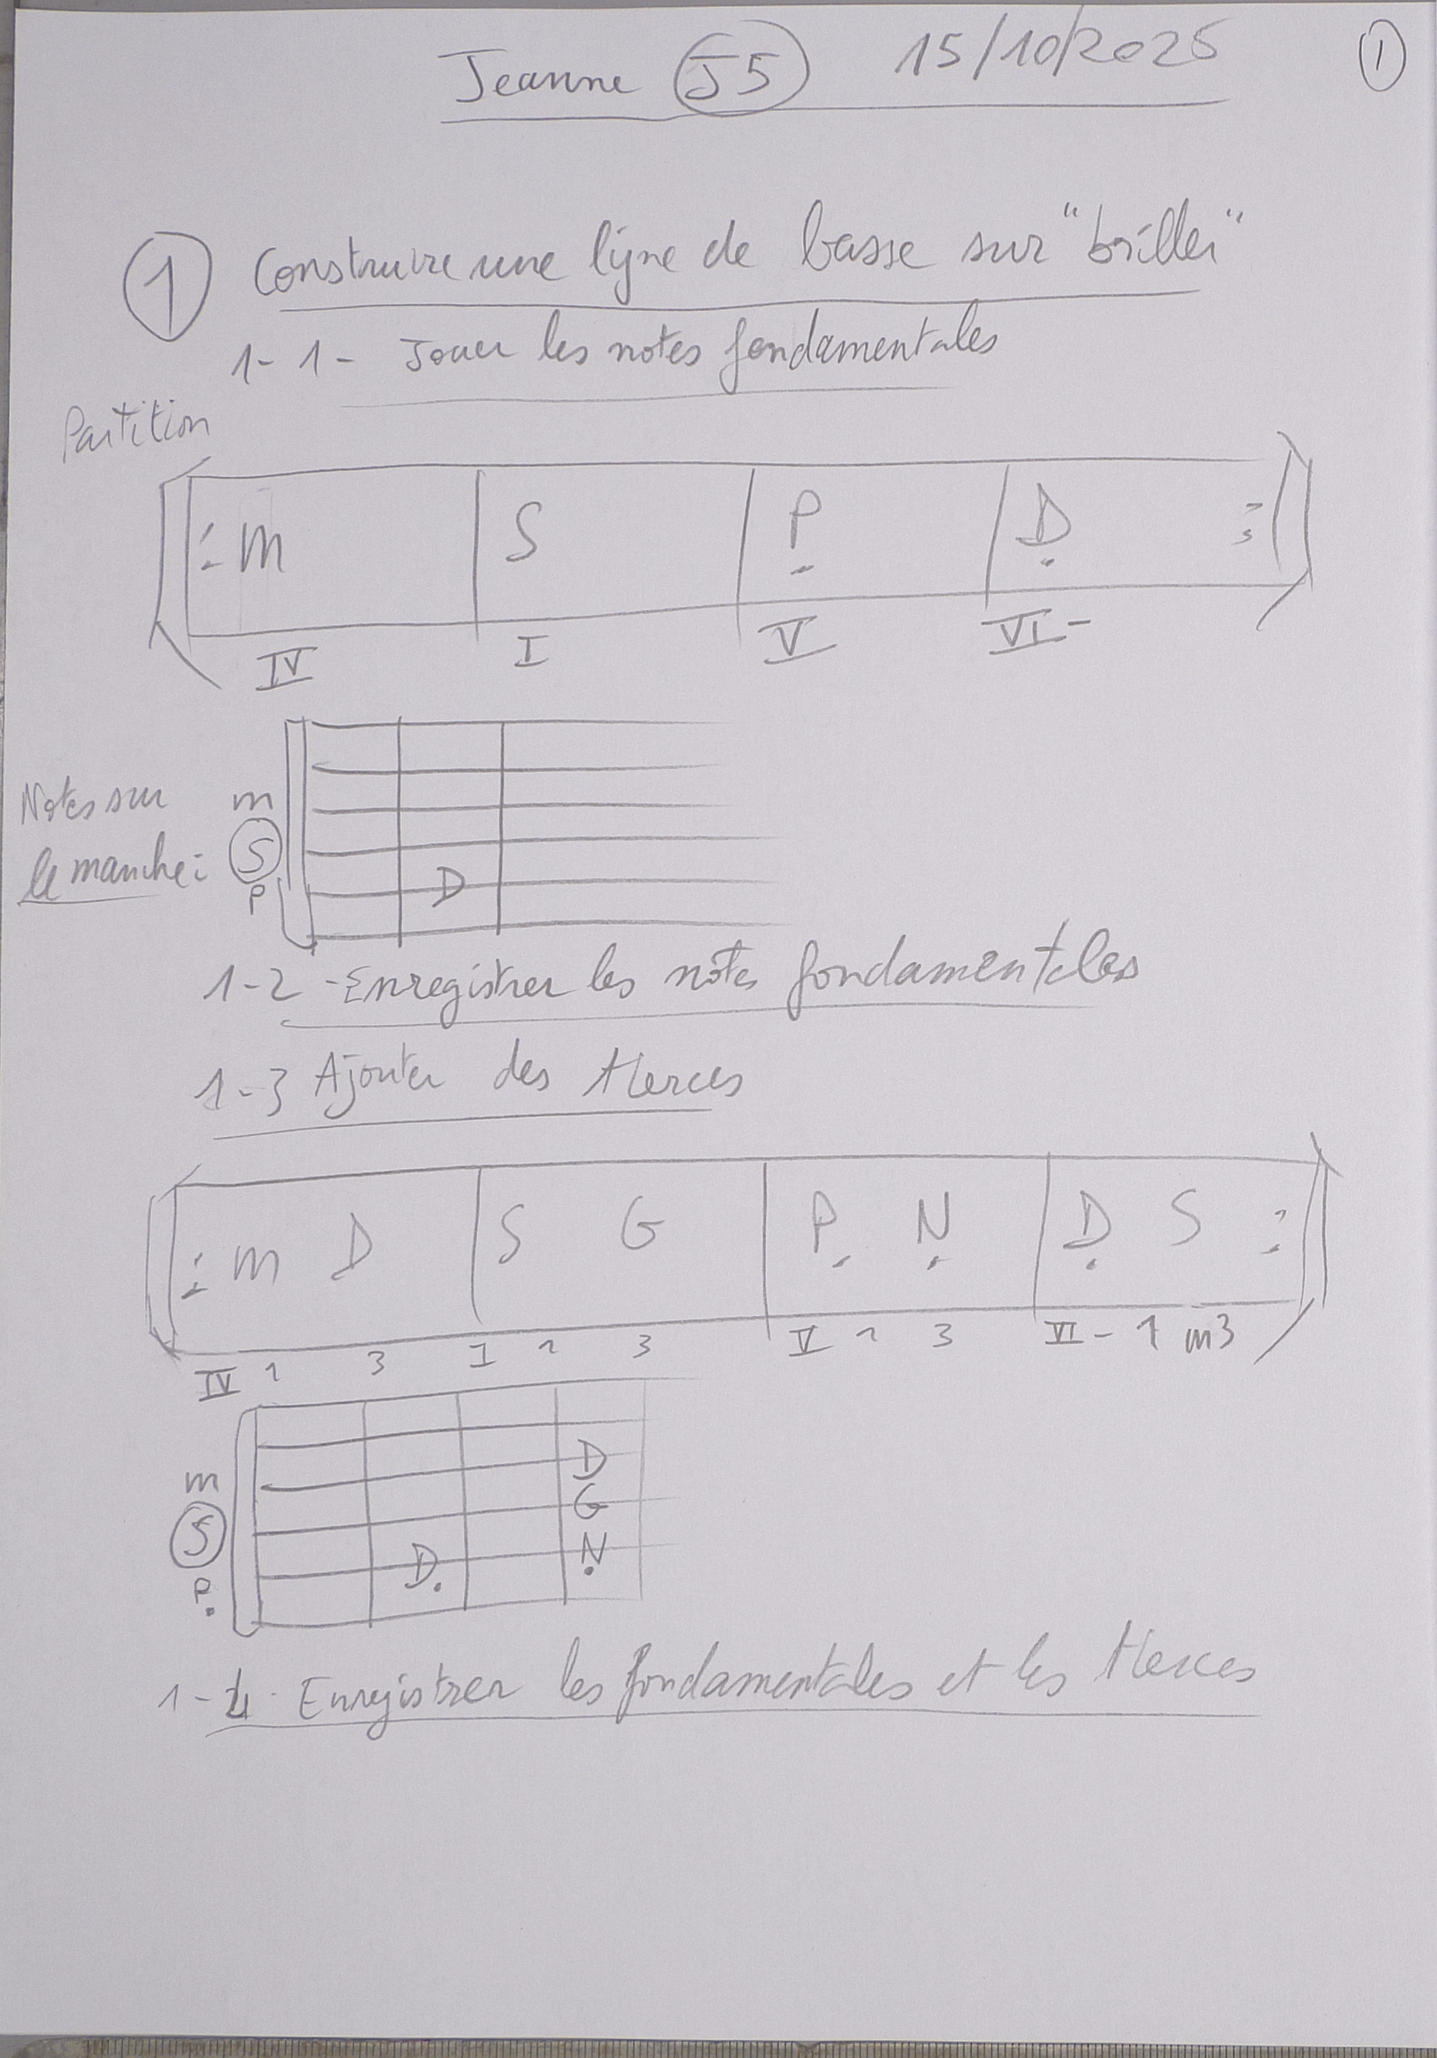 Jeanne J5 15/10/2025 1
1 Construire une ligne de basse sur "briller"
1-1- Jouer les notes fondamentales
Partition
: m | S | P | D :
IV I V VI-
Notes sur
le manche :
m
S
P
D
1-2 - Enregistrer les notes fondamentales
1-3 Ajouter des tierces
: m D | S G | P. N. | D. S :
IV 1 3 I 1 3 V 1 3 VI- 1 m3
D
m G
S N.
P. D.
1-4. Enregistrer les fondamentales et les tierces